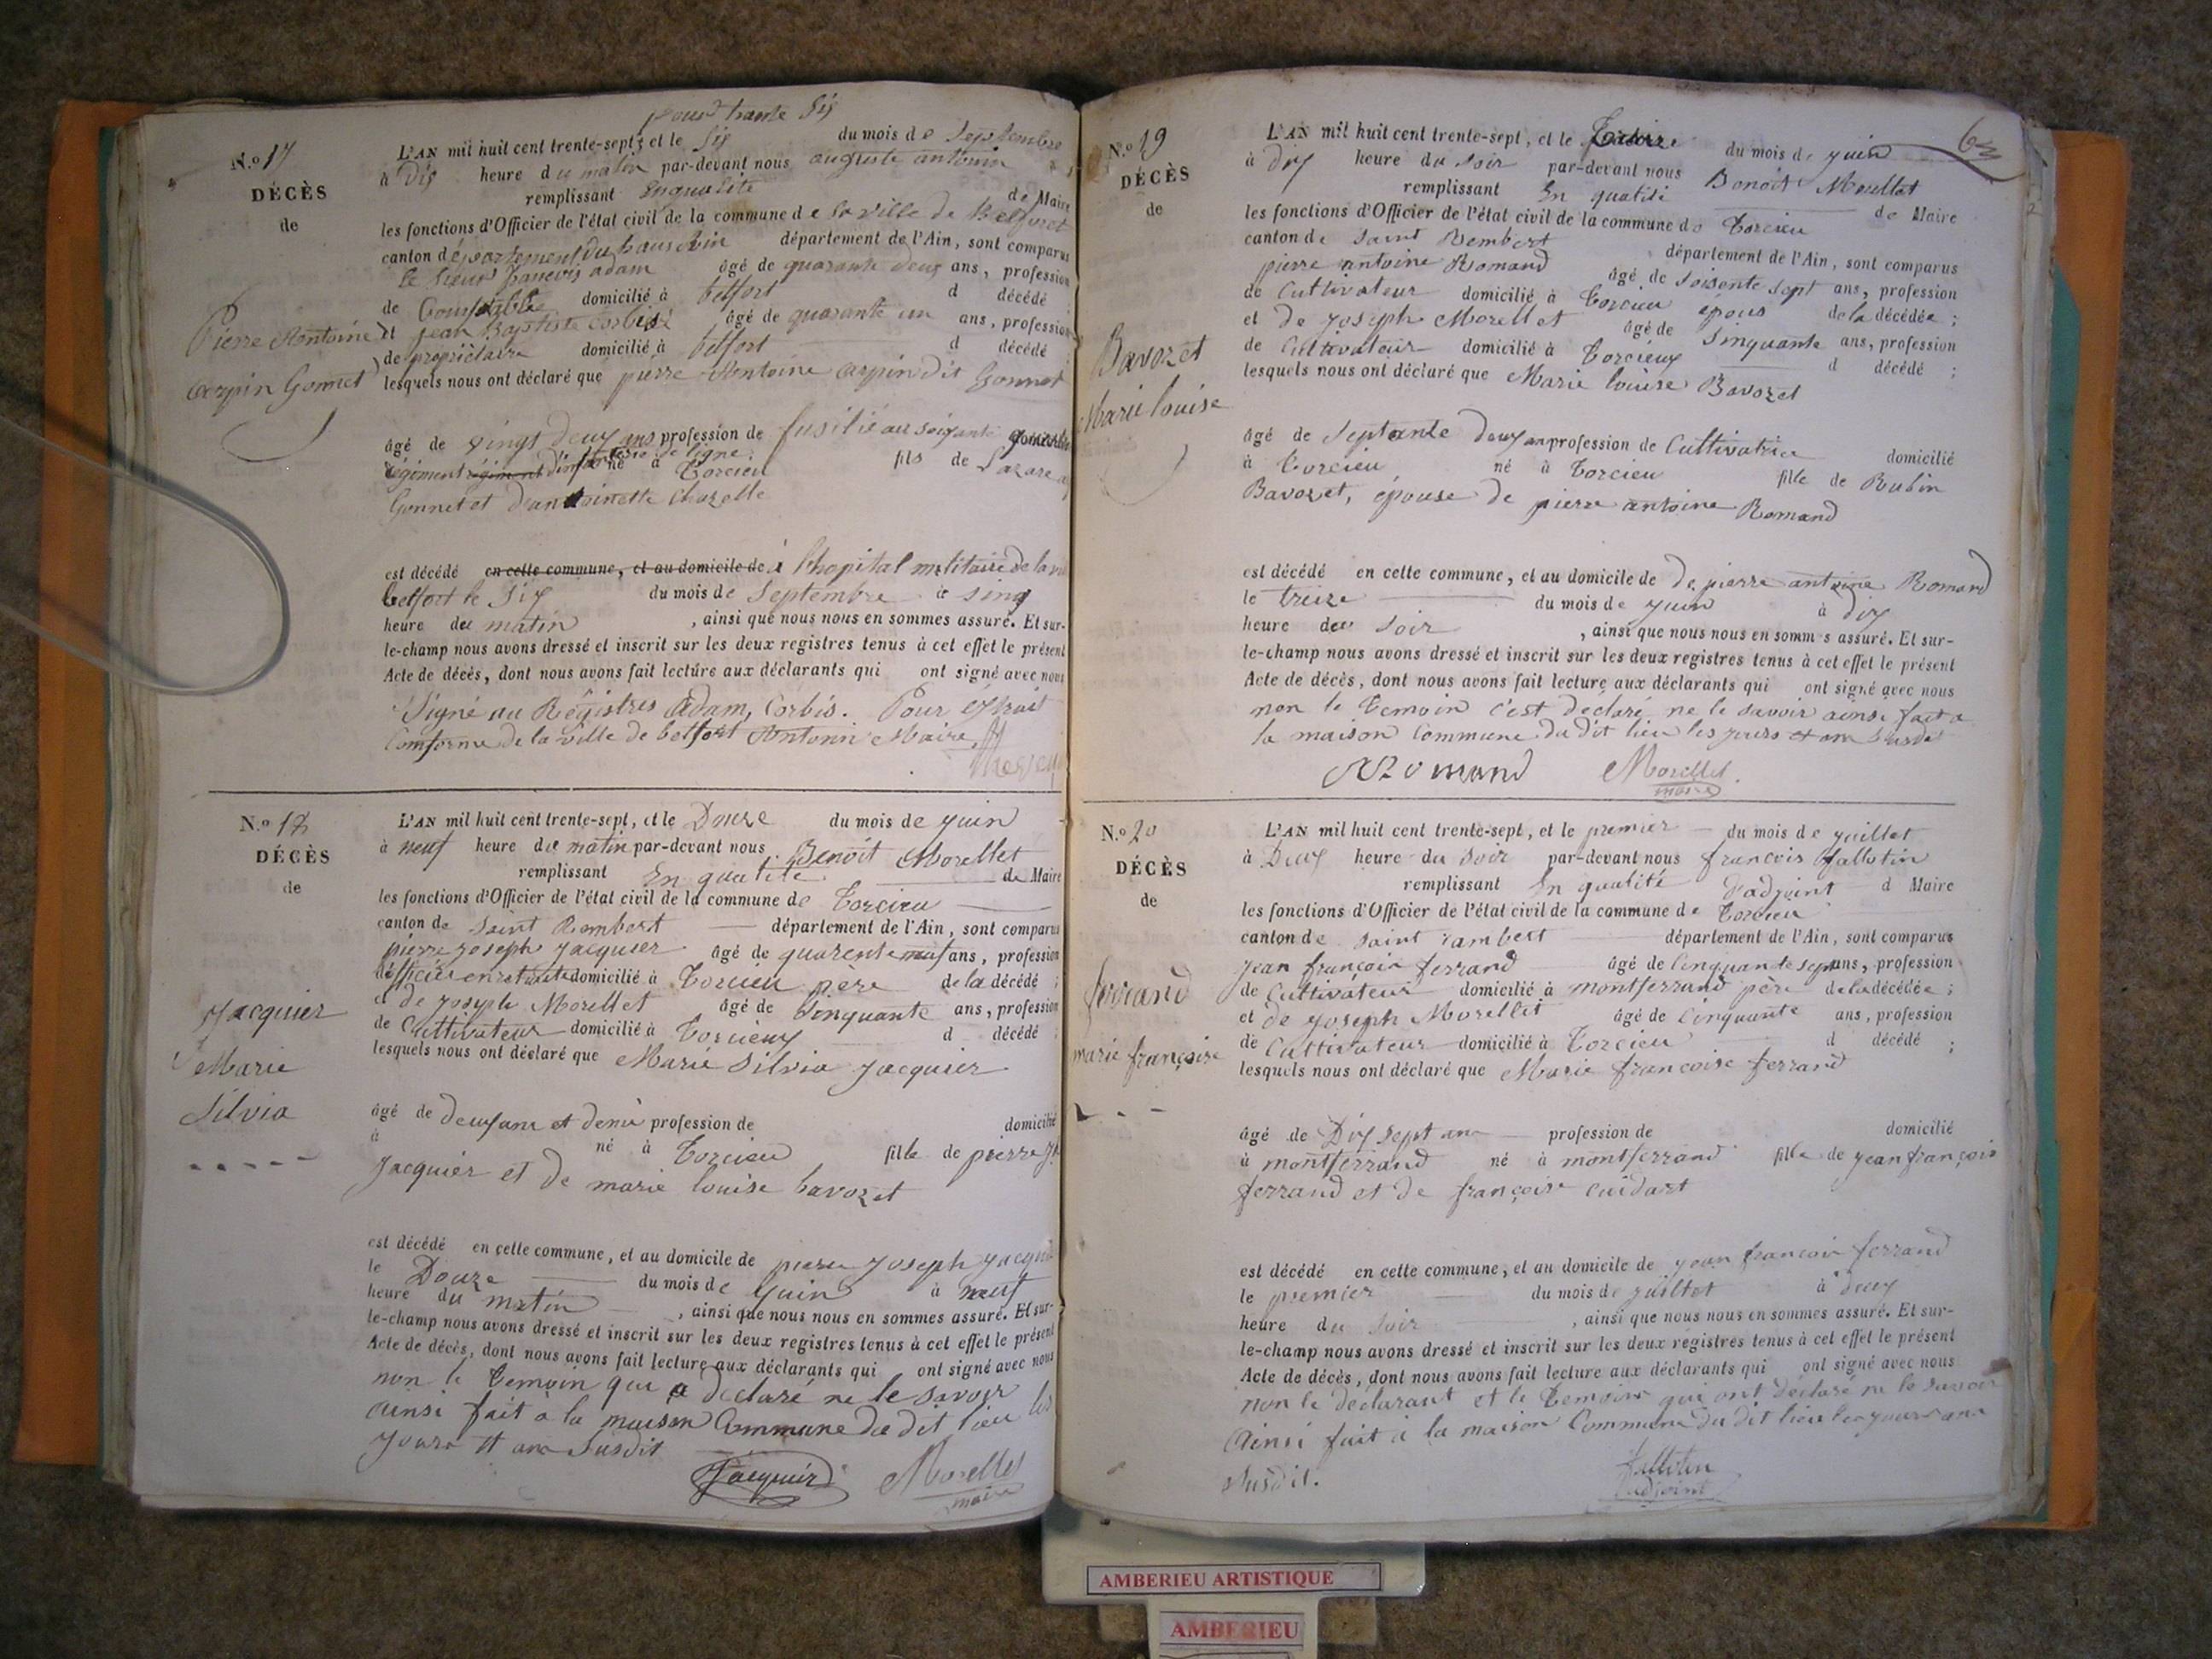 pour trente Six
N.o 17
DÉCÈS
de
Pierre Antoine
Carpin Gonnet
L'AN mil huit cent trente-sept, et le Six du mois de Septembre
à Dix heure du matin par-devant nous auguste antonin
remplissant En qualité de Maire
les fonctions d'Officier de l'état civil de la commune de la ville de Belfort
canton département du haut Rhin département de l'Ain, sont comparus
le Sieur francois adam âgé de quarante deux ans, profession
de domicilié à belfort d décédé
et jean Baptiste Corbis âgé de quarante un ans, profession
de propriétaire domicilié à belfort d décédé
lesquels nous ont déclaré que pierre Antoine Carpin dit Gonnet
âgé de vingt deux ans profession de fusilié au soixante
régiment régiment d'infanterie de ligne né à Torcieu fils de Lazare
Gonnet et d'antoinette Chazelle
est décédé en cette commune, et au domicile de à l'hopital militaire de la
belfort le Six du mois de Septembre à sinq
heure du matin , ainsi que nous nous en sommes assuré. Et sur-
le-champ nous avons dressé et inscrit sur les deux registres tenus à cet effet le présent
Acte de décès, dont nous avons fait lecture aux déclarants qui ont signé avec nous
Signé au Régistres Adam, Corbis. Pour Extrait
Conforme de la ville de belfort Antonin Maire
N.o 18
DÉCÈS
de
Jacquier
Marie
Silvia
L'AN mil huit cent trente-sept, et le Douze du mois de juin
à neuf heure du matin par-devant nous Benoit Morellet
remplissant En qualité de Maire
les fonctions d'Officier de l'état civil de la commune de Torcieu
canton de Saint Rembert département de l'Ain, sont comparus
pierre joseph jacquier âgé de quarente neuf ans, profession
d'officier en retraite domicilié à Torcieu père de la décédé ;
et de joseph Morellet âgé de Sinquante ans, profession
de Cultivateur domicilié à Torcieux d décédé ;
lesquels nous ont déclaré que Marie Silvia jacquier
âgé de deux ans et demi profession de domicilié
à né à Torcieu fille de pierre jh
jacquier et de marie louise bavozet
est décédé en cette commune, et au domicile de pierre joseph jacquier
le Douze du mois de juin à neuf
heure du matin , ainsi que nous nous en sommes assuré. Et sur-
le-champ nous avons dressé et inscrit sur les deux registres tenus à cet effet le présent
Acte de décès, dont nous avons fait lecture aux déclarants qui ont signé avec nous
non le Temoin qui a déclaré ne le savoir
ainsi fait a la maison Commune du dit lieu les
jours et ans Susdit
Jacquier Morellet
maire
63
N.o 19
DÉCÈS
de
Bavozet
Marie louise
L'AN mil huit cent trente-sept, et le Treize du mois de juin
à dix heure du soir par-devant nous Benoit Morellet
remplissant En qualité de Maire
les fonctions d'Officier de l'état civil de la commune de Torcieu
canton de Saint Rembert département de l'Ain, sont comparus
pierre antoine Romand âgé de soisente sept ans, profession
de Cultivateur domicilié à Torcieu épous de la décédée ;
et de joseph Morellet âgé de Sinquante ans, profession
de Cultivateur domicilié à Torcieux d décédé ;
lesquels nous ont déclaré que Marie louise Bavozet
âgé de Septante deux an profession de Cultivatrice domicilié
à Torcieu né à Torcieu fille de Rubin
Bavozet, épouse de pierre antoine Romand
est décédé en cette commune, et au domicile de De pierre antoine Romand
le treize du mois de juin à dix
heure du soir , ainsi que nous nous en somm s assuré. Et sur-
le-champ nous avons dressé et inscrit sur les deux registres tenus à cet effet le présent
Acte de décès, dont nous avons fait lecture aux déclarants qui ont signé avec nous
non le Temoin c'est déclaré ne le savoir ainsi fait a
la maison Commune du dit lieu les jours et an susdit
Romand Morellet
maire
N.o 20
DÉCÈS
de
ferrand
marie françoise
L'AN mil huit cent trente-sept, et le premier du mois de juillet
à Deux heure du soir par-devant nous francois fallotin
remplissant En qualité d'adjoint d Maire
les fonctions d'Officier de l'état civil de la commune de Torcieu
canton de saint rambert département de l'Ain, sont comparus
jean françois ferrand âgé de Cinquante sept ans, profession
de Cultivateur domicilié à montferrand père de la décédée ;
et de joseph Morellet âgé de Cinquante ans, profession
de Cultivateur domicilié à Torcieu d décédé ;
lesquels nous ont déclaré que Marie francoise ferrand
âgé de Dix sept ans profession de domicilié
à montferrand né à montferrand fille de jean françois
ferrand et de françoise cuidart
est décédé en cette commune, et au domicile de jean francois ferrand
le premier du mois de juillet à deux
heure du soir , ainsi que nous nous en sommes assuré. Et sur-
le-champ nous avons dressé et inscrit sur les deux registres tenus à cet effet le présent
Acte de décès, dont nous avons fait lecture aux déclarants qui ont signé avec nous
non le déclarant et le Temoins qui ont déclaré ne le savoir
Ainsi fait à la maison Commune du dit lieu les jours an
susdit.
fallotin
adjoint
AMBERIEU ARTISTIQUE
AMBERIEU